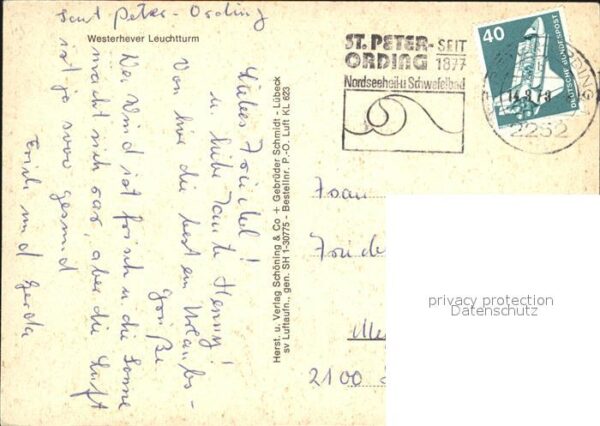 Sent Peter-Ording
Westerhever Leuchtturm
Liebes Friedel!
u. liebe Tante Henny!
Von hier die besten Urlaubs-
grüße.
Der Wind ist frisch u. die Sonne
macht sich rar, aber die Luft
ist ja sooo gesund
Erich und Gerda
Herst. u. Verlag Schöning & Co + Gebrüder Schmidt - Lübeck
sv Luftaufn., gen. SH 1-30775 - Bestellnr. P.-O. Luft KL 623
ST. PETER-
ORDING
SEIT
1877
Nordseeheil-u Schwefelbad
40
DEUTSCHE BUNDESPOST
2252
Frau
2100
privacy protection
Datenschutz